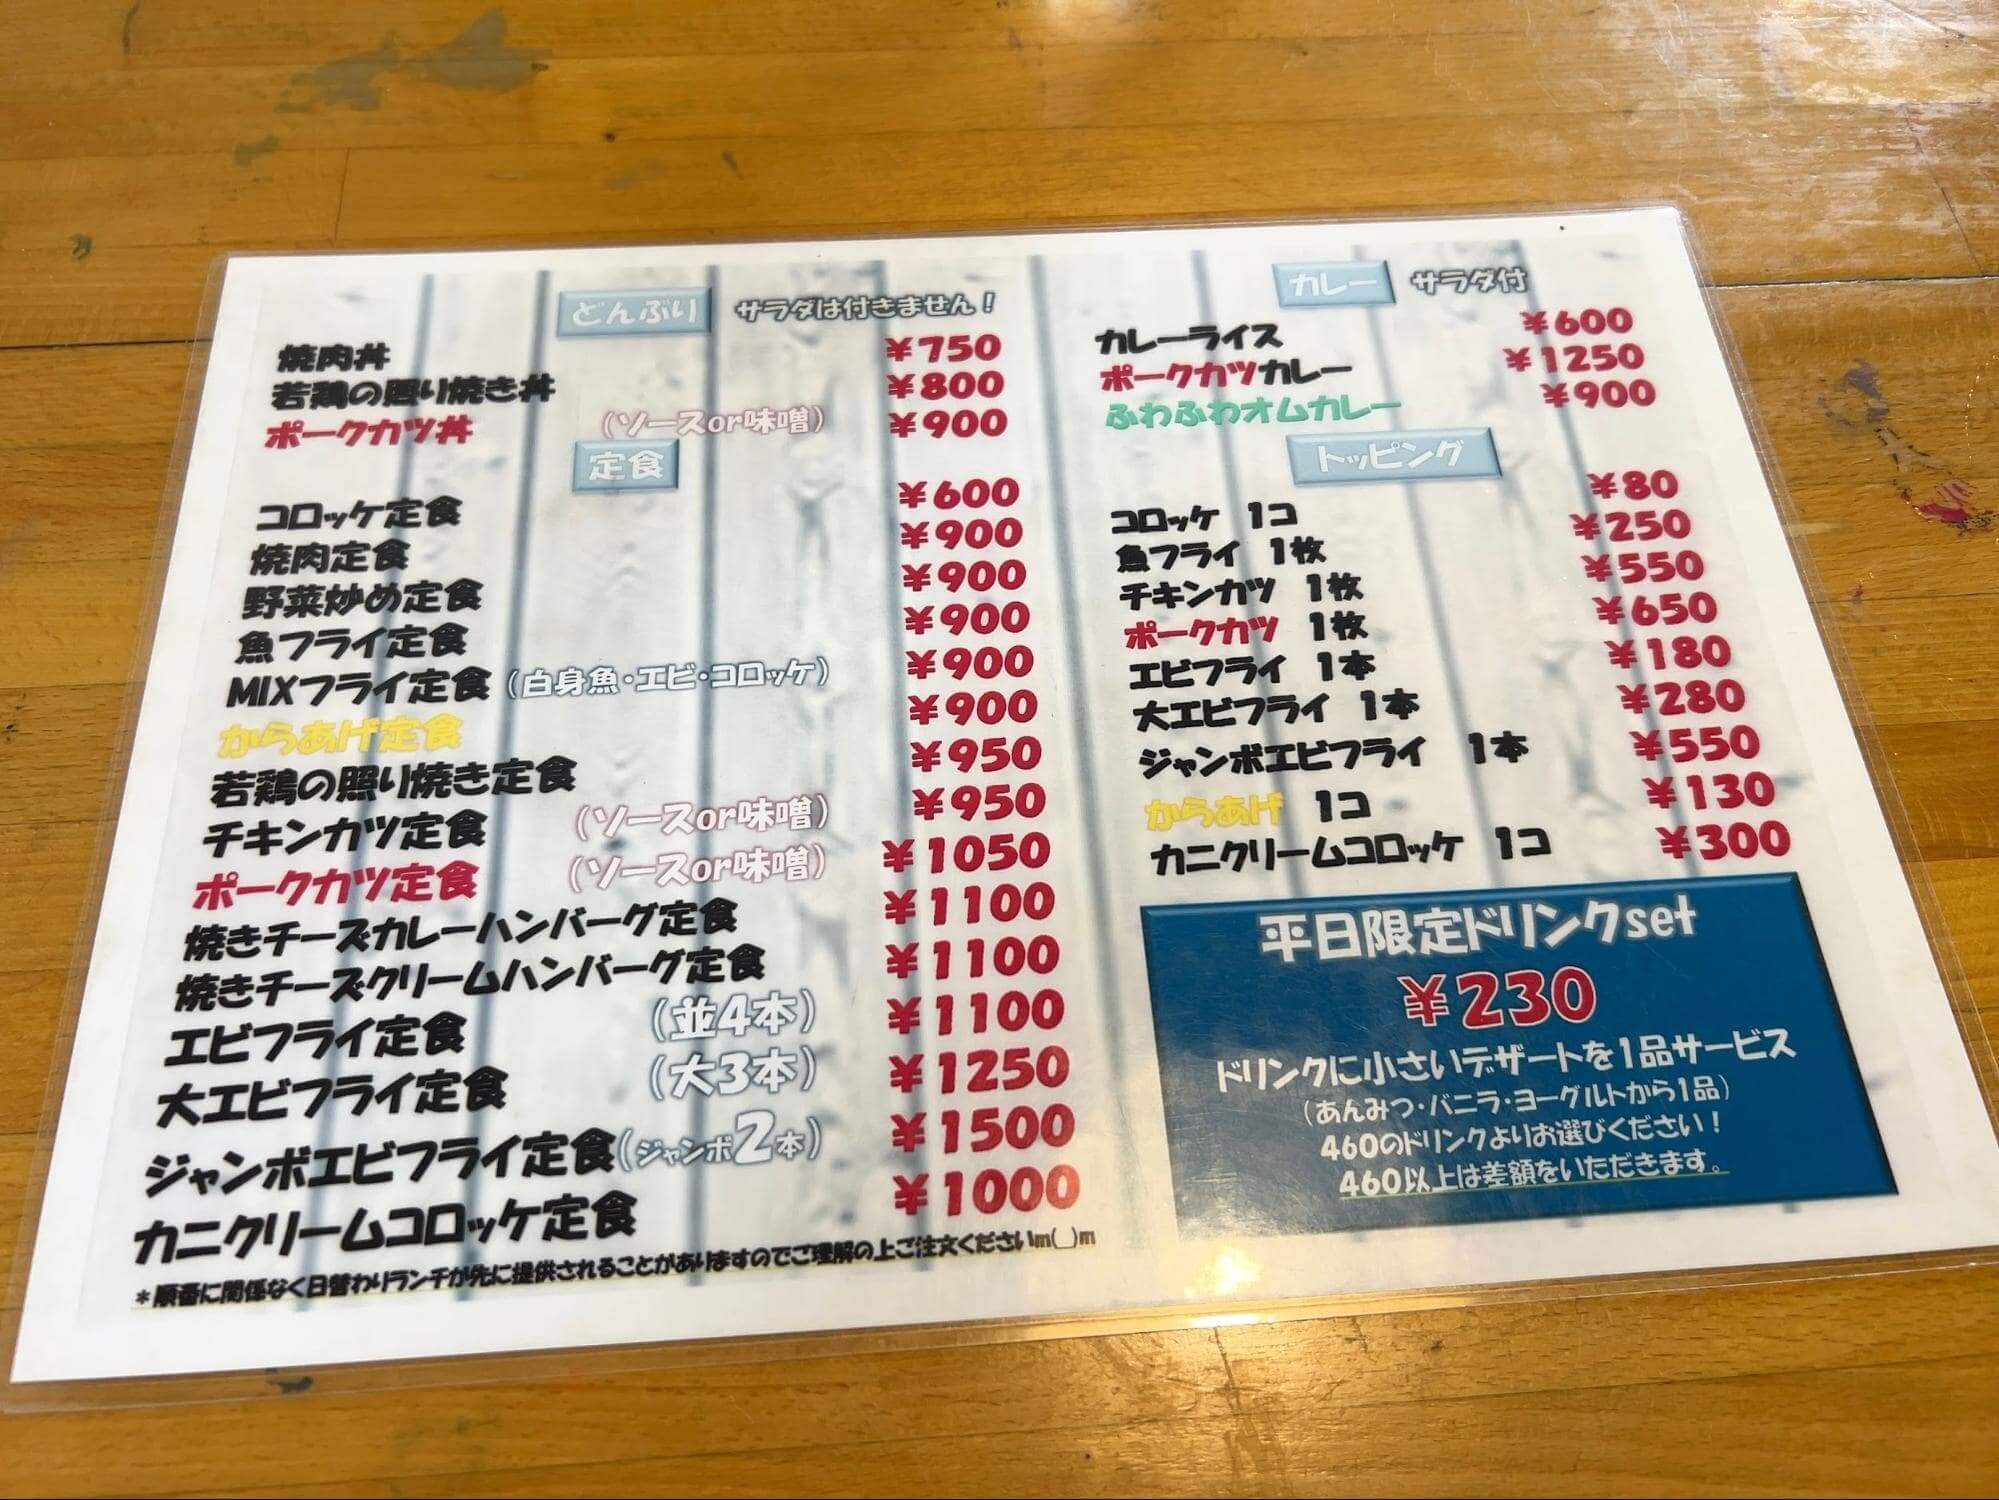 どんぶり サラダは付きません！
焼肉丼 ¥750
若鶏の照り焼き丼 ¥800
ポークカツ丼 (ソースor味噌) ¥900
定食
コロッケ定食 ¥600
焼肉定食 ¥900
野菜炒め定食 ¥900
魚フライ定食 ¥900
MIXフライ定食 (白身魚・エビ・コロッケ) ¥900
からあげ定食 ¥900
若鶏の照り焼き定食 ¥950
チキンカツ定食 (ソースor味噌) ¥950
ポークカツ定食 (ソースor味噌) ¥1050
焼きチーズカレーハンバーグ定食 ¥1100
焼きチーズクリームハンバーグ定食 ¥1100
エビフライ定食 (並4本) ¥1100
大エビフライ定食 (大3本) ¥1250
ジャンボエビフライ定食 (ジャンボ2本) ¥1500
カニクリームコロッケ定食 ¥1000
*順番に関係なく日替わりランチが先に提供されることがありますのでご理解の上ご注文くださいm(_)m
カレー サラダ付
カレーライス ¥600
ポークカツカレー ¥1250
ふわふわオムカレー ¥900
トッピング
コロッケ 1コ ¥80
魚フライ 1枚 ¥250
チキンカツ 1枚 ¥550
ポークカツ 1枚 ¥650
エビフライ 1本 ¥180
大エビフライ 1本 ¥280
ジャンボエビフライ 1本 ¥550
からあげ 1コ ¥130
カニクリームコロッケ 1コ ¥300
平日限定ドリンクset
¥230
ドリンクに小さいデザートを1品サービス
(あんみつ・バニラ・ヨーグルトから1品)
460のドリンクよりお選びください！
460以上は差額をいただきます。